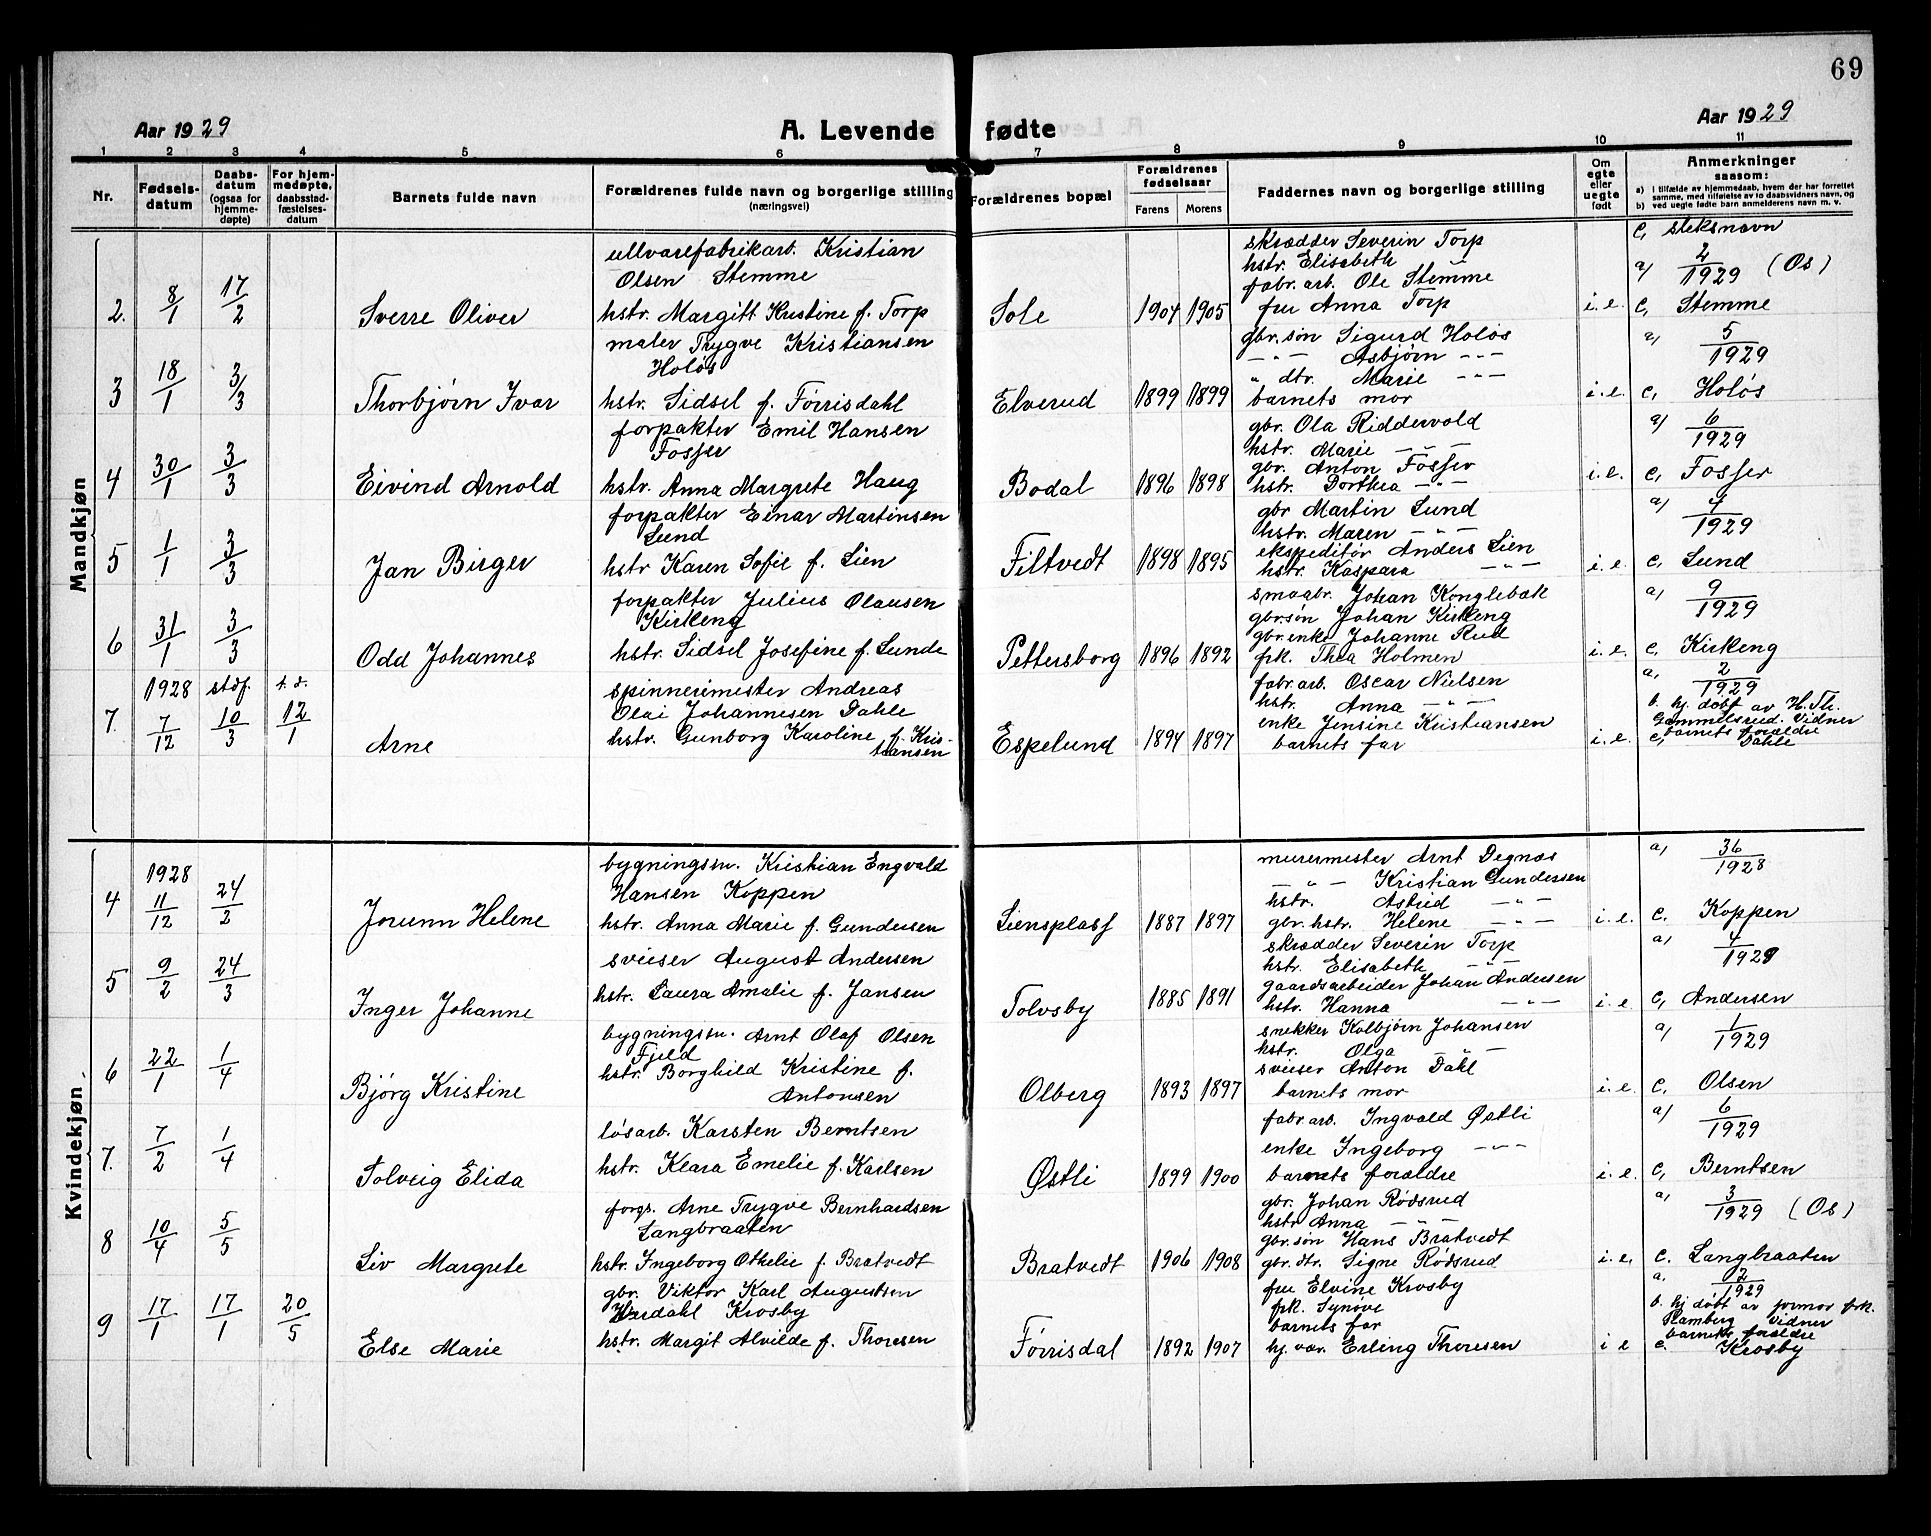 69
Aar 1929
A. Levende fødte
Aar 1929
1 2 3 4 5 6 7 8 9 10 11
Nr.
Fødsels-
datum
Daabs-
datum
(ogsaa for
hjemme-
døpte)
For hjem-
medøpte,
daabsstad-
fæstelses-
datum
Barnets fulde navn
Forældrenes fulde navn og borgerlige stilling
(næringsvei)
Forældrenes bopæl
Forældrenes
fødselsaar
Farens Morens
Faddernes navn og borgerlige stilling
Om
egte
eller
uegte
født
Anmerkninger
saasom:
a) I tilfælde av hjemmedaab, hvem der har forrettet
samme, med tilføielse av to daabsvidners navn, og
b) ved uegte fødte barn anmelderens navn m. v.
Mandkjøn
c, sleksnavn
2. 8/1 17/2
Sverre Oliver
ullvarefabrikarb. Kristian
Olsen Stemme
hstr. Margitt Kristine f. Torp
Sole
1904 1905
skrædder Severin Torp
hstr. Elisabeth
fabr. arb. Ole Stemme
fru Anna Torp
i. e.
a) 2/1929 (Os)
c, Stemme
3 18/1 3/3
Thorbjørn Ivar
maler Trygve Kristiansen
Holøs
hstr. Sidsel f. Førrisdahl
Elverud
1899 1899
gbr. søn Sigurd Holøs
— " — Asbjørn — " —
" dtr. Marie — " —
barnets mor
i. e.
a) 5/1929
c, Holøs
4 30/1 3/3
Eivind Arnold
forpakter Emil Hansen
Fosser
hstr. Anna Margrete Haug
Bodal
1896 1898
gbr. Ola Riddervold
hstr. Marie — " —
gbr. Anton Fosser
hstr. Dorthea — " —
i. e.
a) 6/1929
c, Fosser
5 1/1 3/3
Jan Birger
forpakter Einar Martinsen
Lund
hstr Karen Sofie f. Lien
Filtvedt
1898 1895
gbr Martin Lund
hstr. Maren — " —
ekspeditør Anders Lien
hstr. Kaspara — " —
i. e.
a) 4/1929
c, Lund
6 31/1 3/3
Odd Johannes
forpakter Julius Olausen
Kirkeng
hstr. Sidsel Josefine f. Lunde
Pettersborg
1896 1892
smaabr. Johan Konglebæk
gbr.søn Johan Kirkeng
gbr.enke Johanne Rud
frk. Thea Holmen
i. e.
a) 9/1929
c, Kirkeng
7. 1928 7/12 stdf. 10/3 s. d. 12/1
Arne
spinnerimester Andreas
Olai Johannesen Dahle
hstr. Gunborg Karoline f. Kris-
tiansen
Espelund
1894 1897
fabr. arb. Oscar Nielsen
hstr. Anna — " —
enke Jensine Kristiansen
barnets far
i. e.
a, 2/1929
b. hj. døbt av H. Th.
Gammelsrud. Vidner
barnets forældre
c, Dahle
Kvindekjøn
4 1928 11/12 24/2
Jorunn Helene
bygningssn. Kristian Engvald
Hansen Koppen
hstr. Anna Marie f. Gundersen
Liensplass
1887 1897
murermester Arnt Degnæs
— " — Kristian Gundersen
hstr. Astrid — " —
gbr. hstr. Helene — " —
i. e.
a) 36/1928
c. Koppen
5 9/2 24/3
Inger Johanne
sveiser August Andersen
hstr. Laura Amalie f. Jansen
Tolvsby
1885 1891
skrædder Severin Torp
hstr. Elisabeth — " —
gaardsarbeider Johan Andersen
hstr. Hanna — " —
i. e
a) 4/1929
c, Andersen
6 22/1 1/4
Bjørg Kristine
bygningssn. Arnt Olaf Olsen
Fjeld
hstr. Borghild Kristine f.
Antonsen
Olberg
1893 1897
snekker Kolbjørn Johansen
hstr. Olga — " —
sveiser Anton Dahl
barnets mor
i. e.
a) 1/1929
c, Olsen
7. 7/2 1/4
Solveig Elida
løsarb. Karsten Berntsen
hstr. Klara Emelie f. Karlsen
Østli
1899 1900
fabr. arb. Ingvald Østli
enke Ingeborg — " —
barnets forældre
i. e.
a) 6/1929
c, Berntsen
8 10/4 5/5
Liv Margrete
forgs. Arne Trygve Bernhardsen
Langbraaten
hstr. Ingeborg Othelie f. Bratvedt
Bratvedt
1906 1908
gbr. Johan Rødsrud
hstr Anna — " —
gbr. søn Hans Bratvedt
gbr. dtr. Signe Rødsrud
i. e.
a, 3/1929 (Os)
c. Langbraaten
9 17/1 17/1 20/5
Else Marie
gbr. Viktor Karl Augustsen
Krosby
hstr. Margit Alvilde f. Thoresen
Førrisdal
1892 1907
fru Elvine Krosby
frk. Synøve
barnets far
hj. vær. Erling Thoresen
i e
a. 2/1929
b. hj døbt av jormor frk.
Flamberg Vidner
barnets forældre
c. Krosby